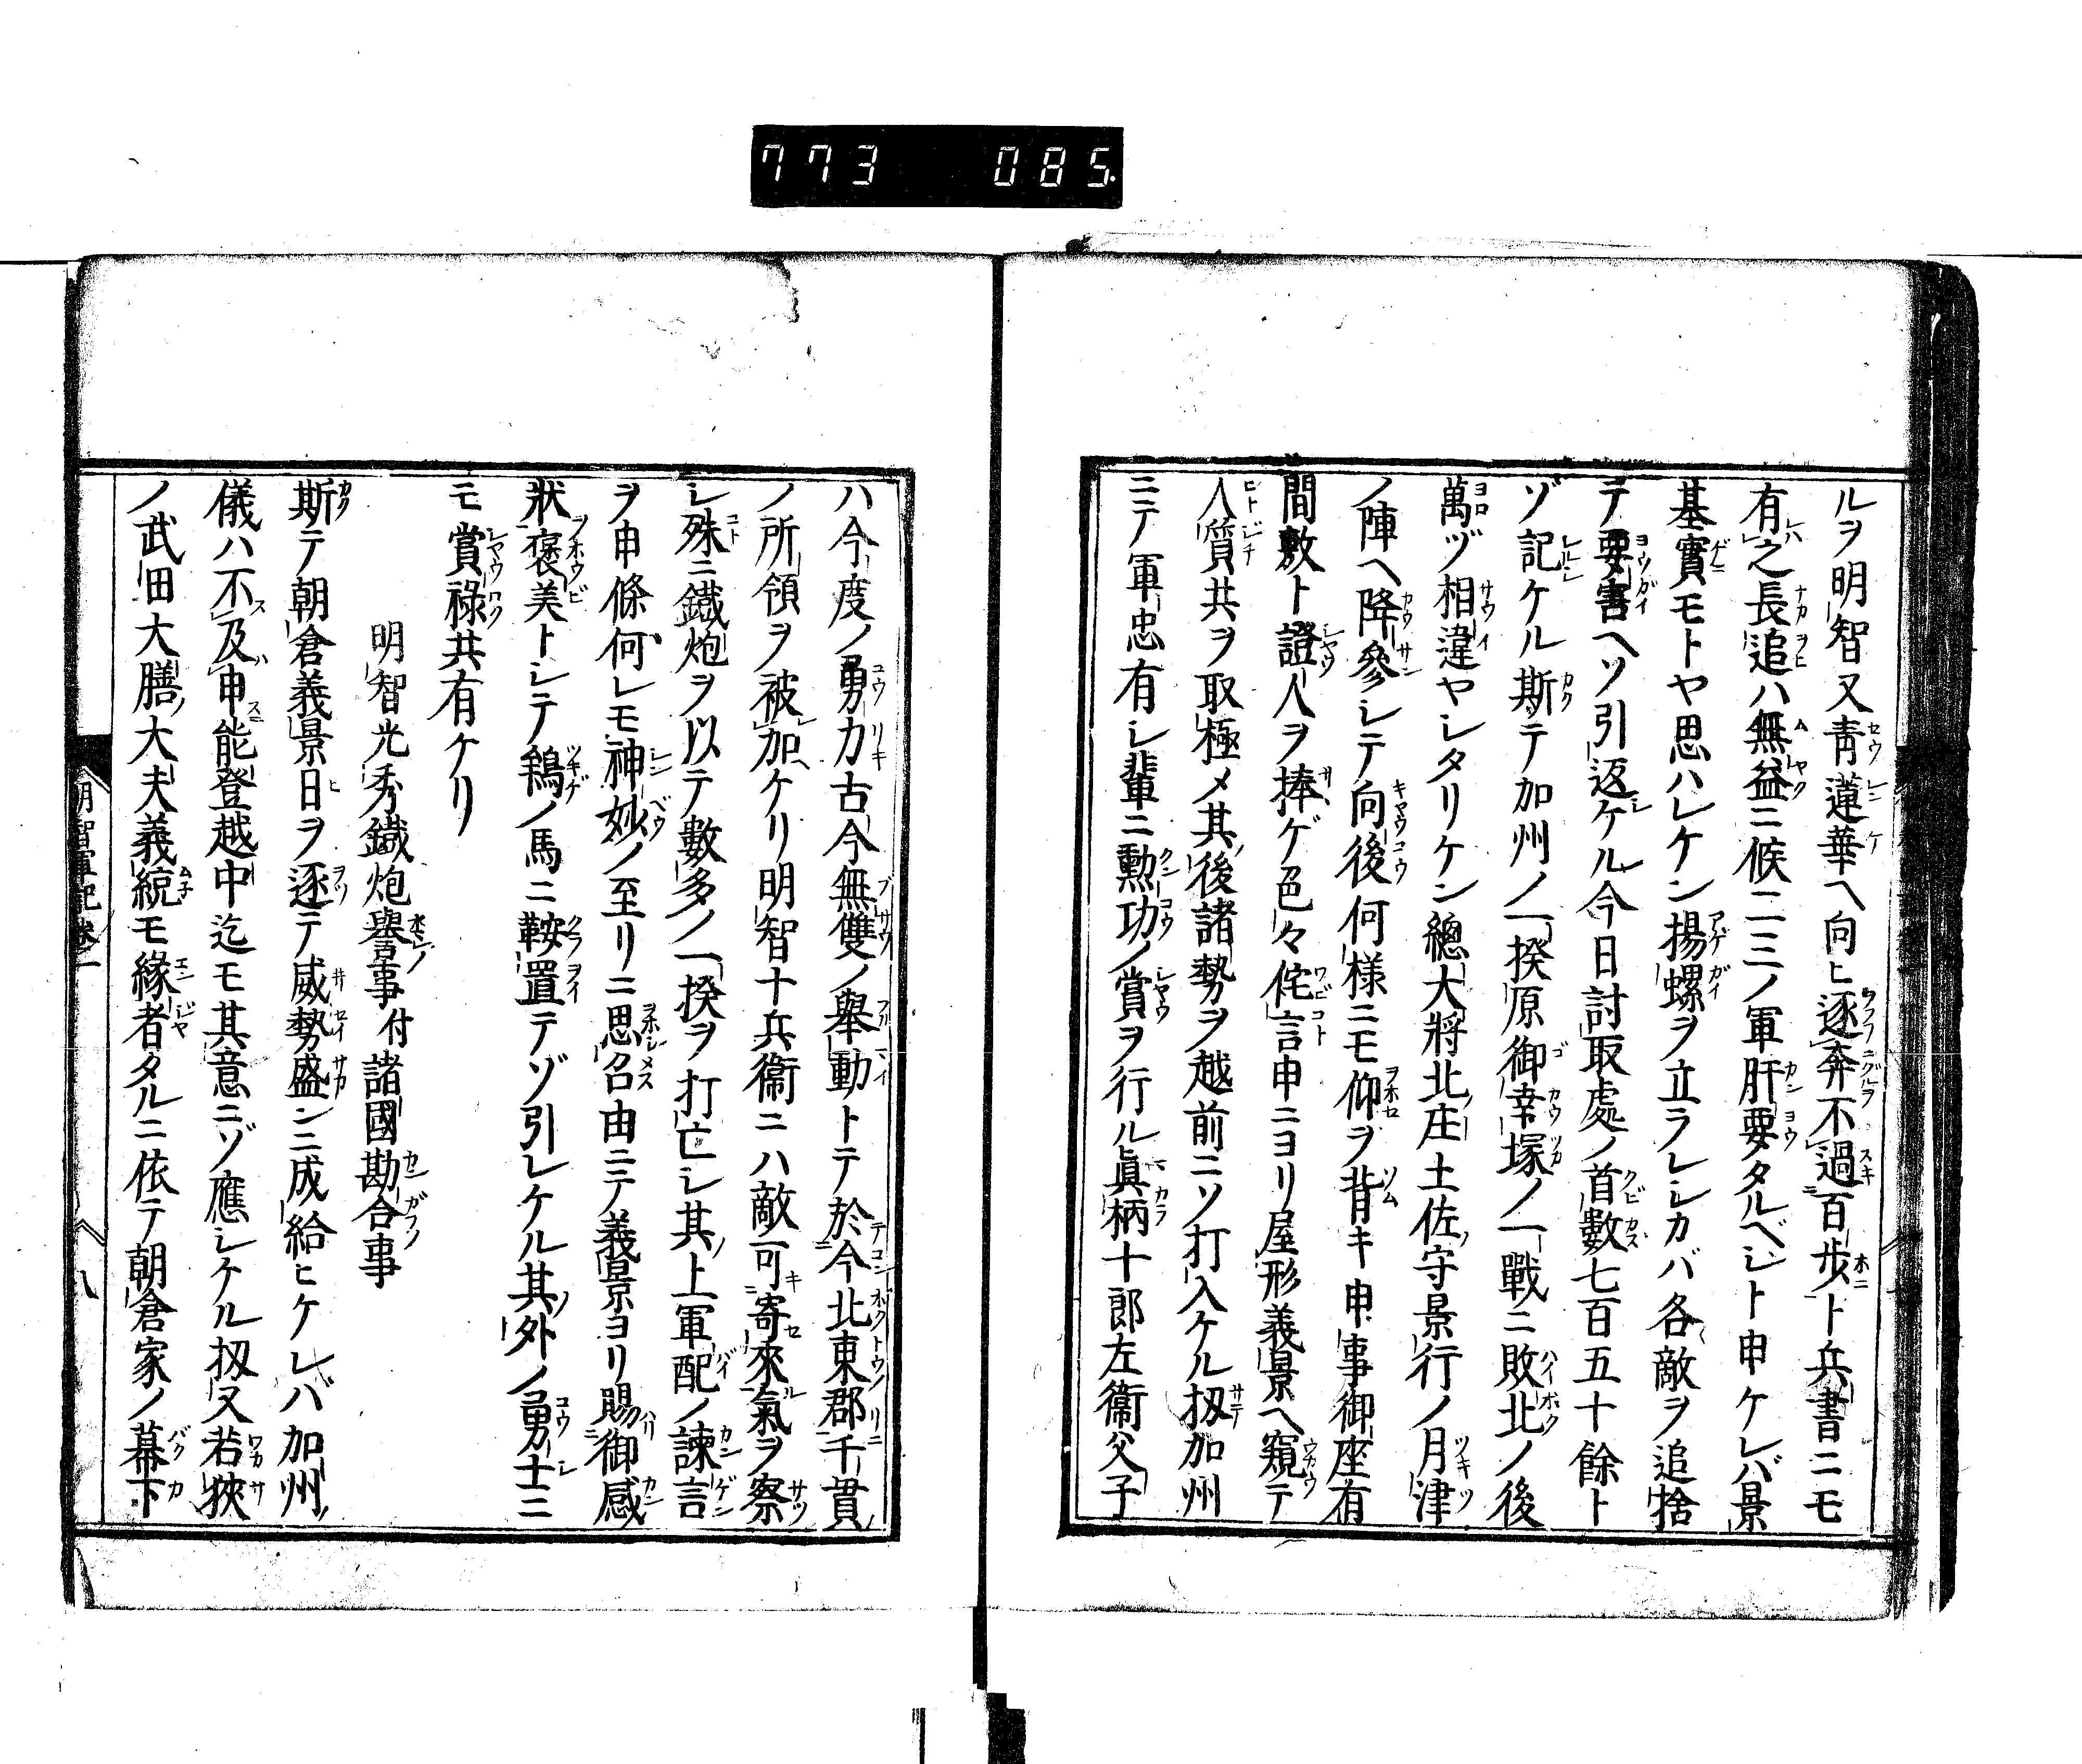 773 085.
ルヲ明智又靑蓮華ヘ向ヒ逐奔不過百歩ト兵書ニモ
有之長追ハ無益ニ候二三ノ軍肝要タルベシト申ケレバ景
基實モトヤ思ハレケン揚螺ヲ立ラレシカバ各敵ヲ追捨
テ要害ヘソ引返ケル今日討取處ノ首數七百五十餘ト
ゾ記ケル斯テ加州ノ一揆原御幸塚ノ一戰ニ敗北ノ後
萬ヅ相違ヤシタリケン總大將北庄土佐守景行ノ月津
ノ陣ヘ降參シテ向後何樣ニモ仰ヲ背キ申事御座有
間敷ト證人ヲ捧ゲ色々侘言申ニヨリ屋形義景ヘ窺テ
人質共ヲ取極メ其後諸勢ヲ越前ニソ打入ケル扨加州
ニテ軍忠有シ輩ニ勳功ノ賞ヲ行ル眞柄十郎左衞父子
ハ今度ノ勇力古今無雙ノ舉動トテ於今北東郡千貫
ノ所領ヲ被加ケリ明智十兵衞ニハ敵可寄來氣ヲ察
シ殊ニ鐵炮ヲ以テ數多ノ一揆ヲ打亡シ其上軍配ノ諫言
ヲ申條何レモ神妙ノ至リニ思召由ニテ義景ヨリ賜御感
狀褒美トシテ鴾ノ馬ニ鞍置テゾ引レケル其外ノ勇士ニ
モ賞祿共有ケリ
明智光秀鐵炮譽事付諸國勘合事
斯テ朝倉義景日ヲ逐テ威勢盛ンニ成給ヒケレバ加州
儀ハ不及申能登越中迄モ其意ニゾ應シケル扨又若狹
ノ武田大膳大夫義統モ緣者タルニ依テ朝倉家ノ幕下
明智軍記卷一 八